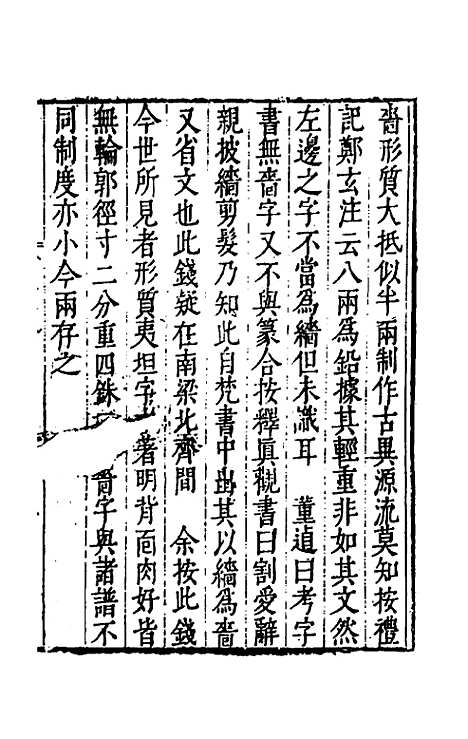 嗇形質大抵似半兩制作古異源流莫知按禮
記鄭玄注云八兩爲鉛據其輕重非如其文然
左邊之字不當爲繬但未識耳　董逌曰考字
書無嗇字又不與篆合按釋眞觀書曰割愛辭
親披繬剪髮乃知此自梵書中出其以繬爲嗇
又省文也此錢疑在南梁北齊間　余按此錢
今世所見者形質夷坦字著明背面肉好皆
無輪郭徑寸二分重四銖嗇字與諸譜不
同制度亦小今兩存之